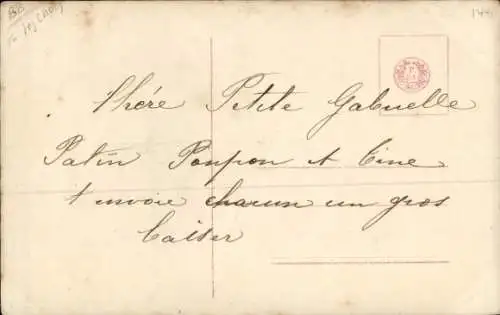 Chére Petite Gabrielle
Patin Poupon et Cine
t envoie chacun un gros
baiser